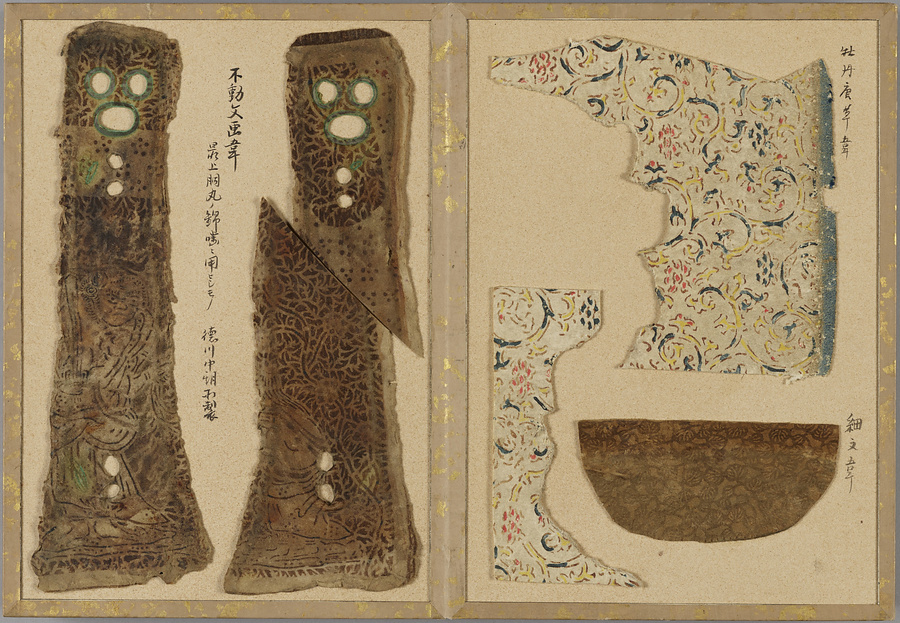 牡丹唐草韋
細文韋
不動文画韋
最上胴丸ノ錦噛ニ用ヒシモノ 徳川中期ノ製